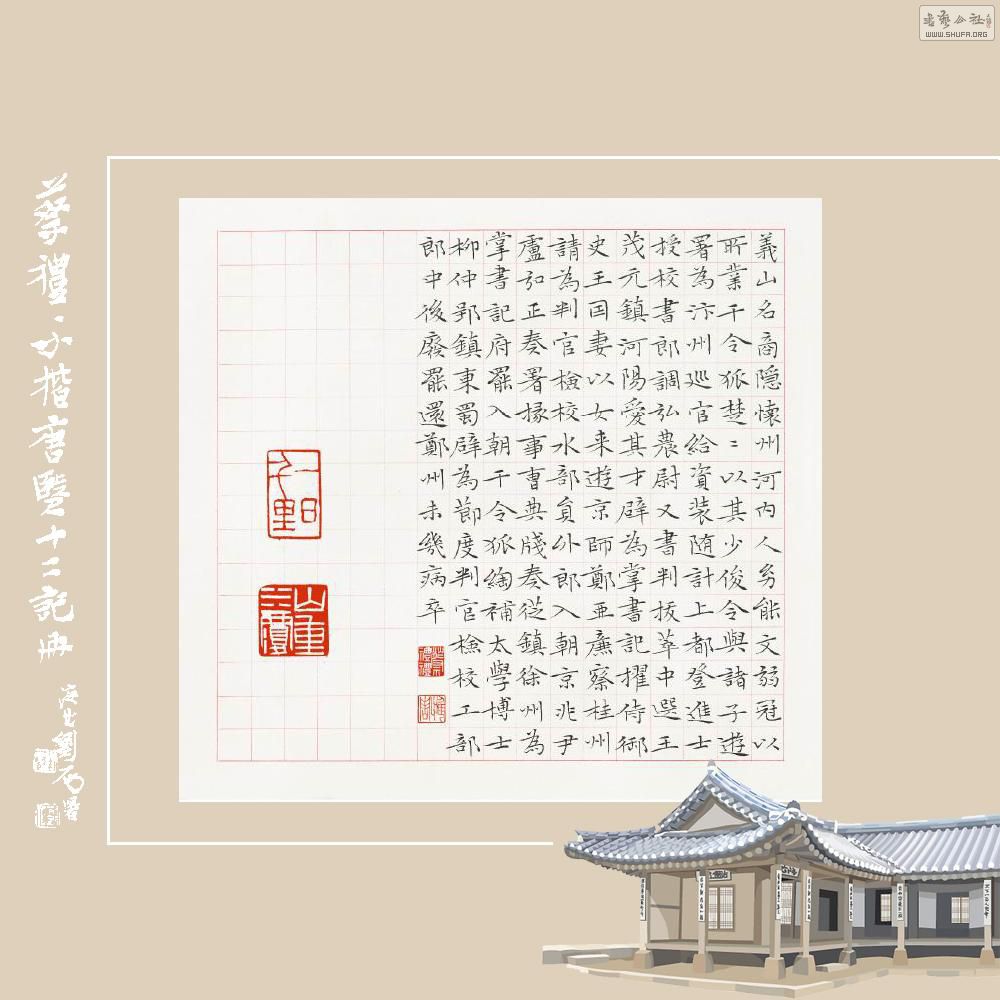 書藝公社
WWW.SHUFA.ORG
義山名商隱懷州河內人幼能文弱冠以
所業干令狐楚〻以其少俊令與諸子遊
署為汴州巡官給資裝随計上都登進士
授校書郎調弘農尉又書判拔萃中選王
茂元鎮河陽愛其才辟為掌書記擢侍御
史王因妻以女来遊京師鄭亜廉察桂州
請為判官檢校水部員外郎入朝京兆尹
盧弘正奏署掾事曹典牋奏從鎮徐州為
掌書記府罷入朝干令狐綯補太學博士
柳仲郢鎮東蜀辟為節度判官檢校工部
郎中後廢罷還鄭州未幾病卒
蔡禮·小楷唐賢十三記冊
劉石署